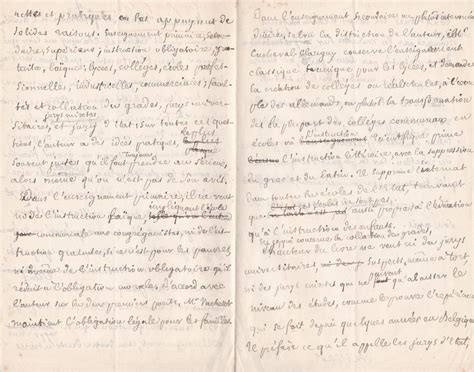 nettes et pratiques, en les appuyant de
solides raisons. Enseignement primaire, secon-
daire, supérieur; instruction obligatoire, gra-
tuite, laïque; lycées, collèges, écoles profes-
sionnelles, industrielles, commerciales; facul-
tés et collation des grades, jurys univer-
jurys mixtes
sitaires, et jurys d'Etat; sur toutes ces ques-
le plus
tions l'auteur a des idées pratiques,
souvent justes qu'il faut toujours au sérieux,
alors même qu'on n'est pas de son avis.
Dans l'enseignement primaire, il ne veut
impliquant
ni de l'instruction laïque,
communale aux congréganistes, ni de l'ins-
truction gratuite, si ce n'est pour les pauvres,
ni même de l'instruction obligatoire qu'il
réduit à l'obligation morale. D'accord avec
l'auteur sur les deux premiers points, Mr Vacherot
maintient l'obligation légale pour les familles.
Dans l'enseignement secondaire, ou plutôt intermé-
diaire, selon la distinction de l'auteur, Mr
Cucheval Clarigny conserve l'enseignement
classique pour les lycées, et demande
la création de collèges ou réalschules, à l'ins-
tar des allemands, ou plutôt la transformation
de la plupart des collèges communaux, en
l'instruction
écoles où scientifique prime
l'instruction littéraire avec la suppression
du grec et du latin. Il supprime l'internat
dans toutes les écoles de l'Etat, trouvant
aussi propice à l'éducation
qu'à l'instruction des enfants.
En ce qui concerne la collation des grades,
l'auteur du livre ne veut ni des jurys
universitaires, suspects, même à tort,
ni des jurys mixtes qui ne qu'abaisser le
niveau des études, comme le prouve l'expérience
qui se fait depuis quelques années en Belgique.
Il préfère ce qu'il appelle les jurys d'Etat,